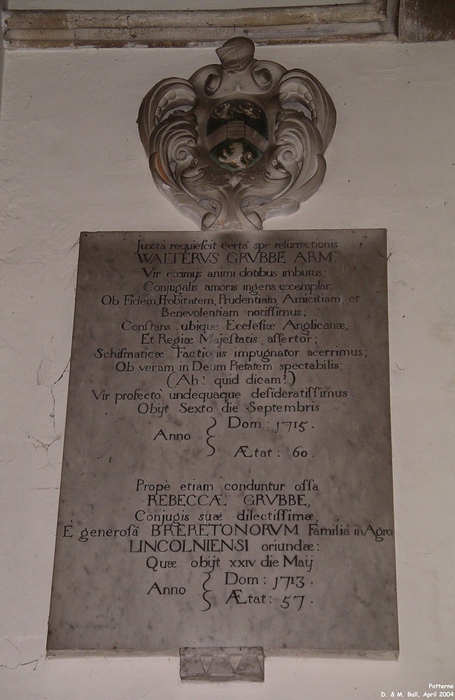 Juxtà requiescit certâ spe resurrectionis
WALTERVS GRVBBE ARM.
Vir eximijs animi dotibus imbutus;
Conjugalis amoris ingens exemplar,
Ob Fidem Probitatem, Prudentiam, Amicitiam, et
Benevolentiam notissimus;
Constans ubique Ecclesiæ Anglicanæ,
Et Regiæ Majestatis, assertor;
Schismaticæ Factionis impugnator acerrimus;
Ob veram in Deum Pietatem spectabilis;
(Ah! quid dicam!)
Vir profecto undequaque desideratissimus.
Obijt Sexto die Septembris
Anno { Dom: 1715.
Ætat: 60.
Prope etiam conduntur ossa
REBECCÆ GRVBBE,
Conjugis suæ dilectissimæ,
E generosâ BRERETONORVM Familiâ in Agro
LINCOLNIENSI oriundæ:
Quæ obijt XXIV die Maij
Anno { Dom: 1713.
Ætat: 57.
Potterne
D. & M. Ball, April 2004